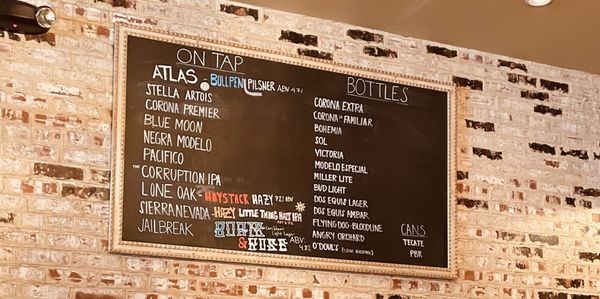 ON TAP
ATLAS BULLPEN PILSNER ABV 4.7%
STELLA ARTOIS
CORONA PREMIER
BLUE MOON
NEGRA MODELO
PACIFICO
THE CORRUPTION IPA
LONE OAK-HAYSTACK HAZY ABV
SIERRA NEVADA-HAZY LITTLE THING HAZY IPA
JAILBREAK
& ABV
BOTTLES
CORONA EXTRA
CORONA FAMILIAR
BOHEMIA
SOL
VICTORIA
MODELO ESPECIAL
MILLER LITE
BUD LIGHT
DOS EQUIS LAGER
DOS EQUIS AMBAR
FLYING DOG-BLOODLINE
ANGRY ORCHARD
O'DOUL'S (LOW ALCOHOL)
CANS
TECATE
PBR